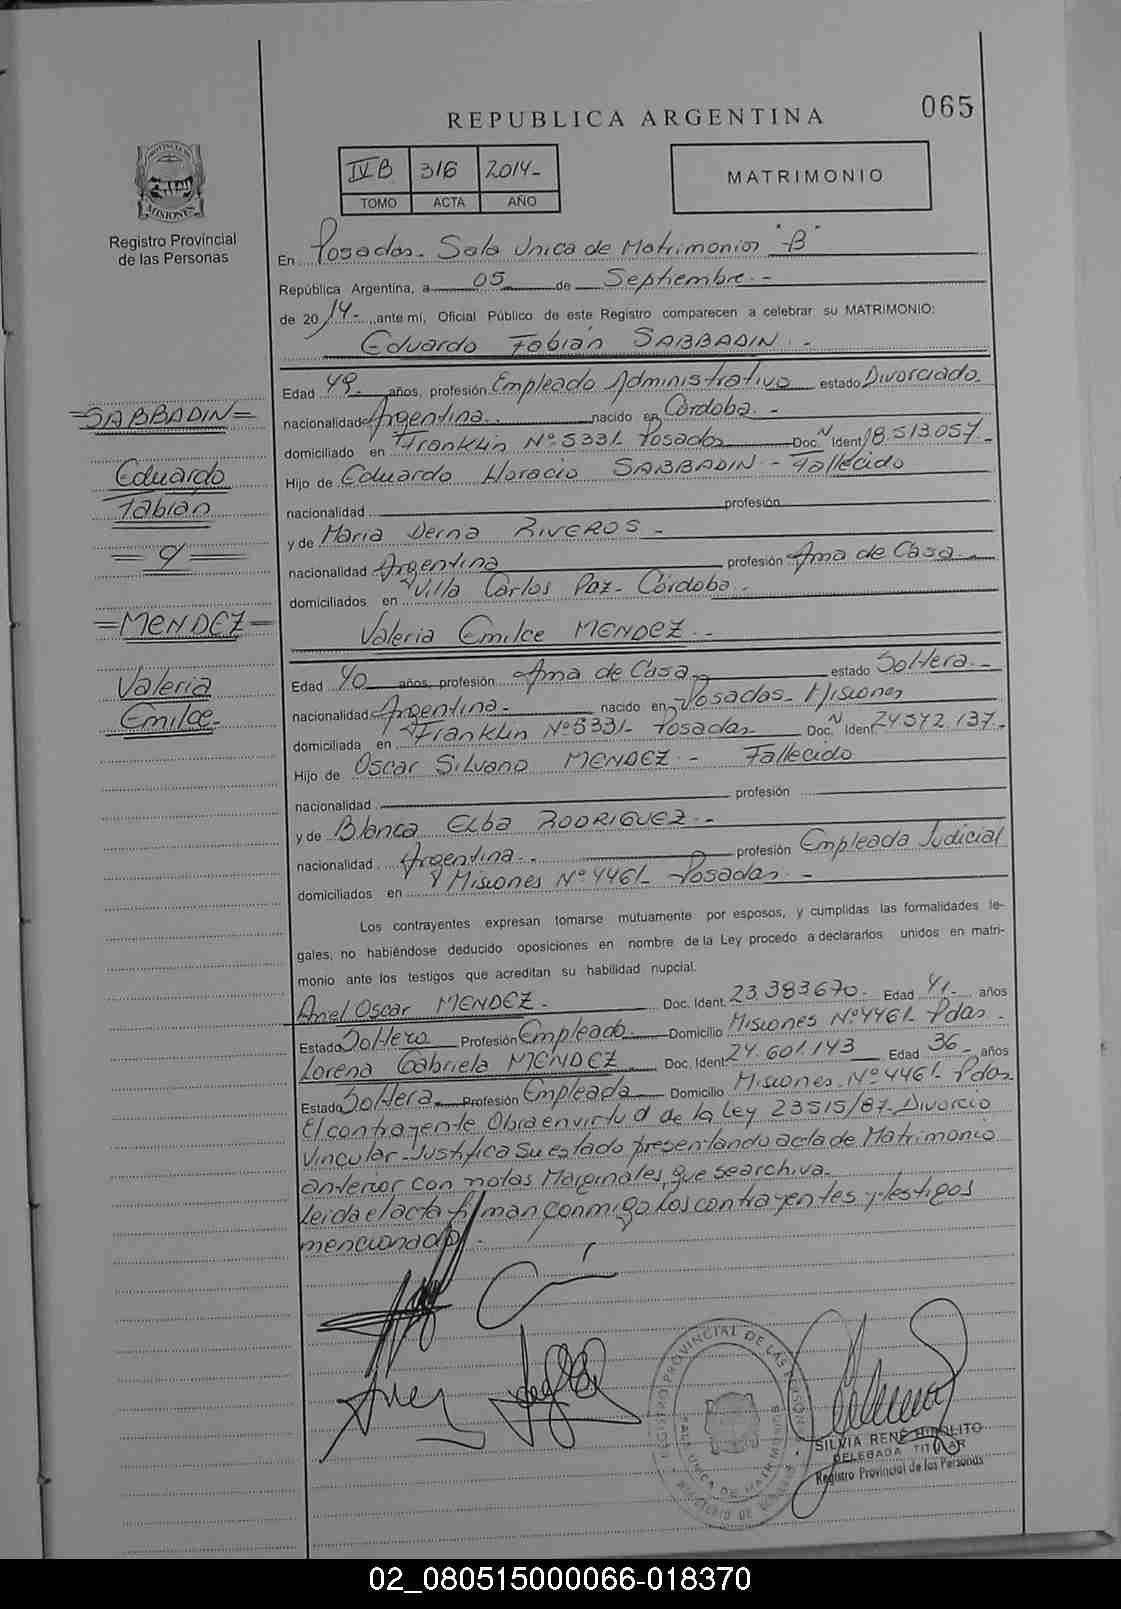 065
REPUBLICA ARGENTINA
IV B 316 2014-
TOMO ACTA AÑO
MATRIMONIO
PROVINCIA DE MISIONES
Registro Provincial
de las Personas
En Posadas- Sala Unica de Matrimonios "B"
República Argentina, a 05 de Septiembre.-
de 2014- ante mí, Oficial Público de este Registro comparecen a celebrar su MATRIMONIO:
Eduardo Fabián SABBADIN.-
Edad 49 años, profesión Empleado Administrativo estado Divorciado.
nacionalidad Argentina. nacido en Córdoba.-
domiciliado en Franklin Nº 5331- Posadas Doc. N Ident 18.513.057-
Hijo de Eduardo Horacio SABBADIN- Fallecido
nacionalidad profesión
y de Maria Derna RIVEROS-
nacionalidad Argentina profesión Ama de Casa-
domiciliados en Villa Carlos Paz- Córdoba-
Valeria Emilce MENDEZ.-
Edad 40 años, profesión Ama de Casa estado Soltera.-
nacionalidad Argentina.- nacido en Posadas- Misiones
domiciliada en Franklin Nº 5331- Posadas- Doc. N Ident 24.572.137-
Hijo de Oscar Silvano MENDEZ.- Fallecido
nacionalidad profesión
y de Blanca Elba RODRIGUEZ.-
nacionalidad Argentina.- profesión Empleada Judicial
domiciliados en Misiones Nº 4461- Posadas.-
=SABBADIN=
Eduardo
Fabián
= y =
=MENDEZ=
Valeria
Emilce-
Los contrayentes expresan tomarse mutuamente por esposos, y cumplidas las formalidades le-
gales, no habiéndose deducido oposiciones en nombre de la Ley procedo a declararlos unidos en matri-
monio ante los testigos que acreditan su habilidad nupcial.
Ariel Oscar MENDEZ. Doc. Ident. 23.383.670- Edad 41- años
Estado Soltero Profesión Empleado- Domicilio Misiones Nº 4461- Pdas.
Lorena Gabriela MENDEZ Doc. Ident 27.601.143 Edad 36- años
Estado Soltera- Profesión Empleada- Domicilio Misiones Nº 4461- Pdas
El contrayente Obra en virtud de la Ley 23515/87-Divorcio
Vincular-Justifica su estado presentando acta de Matrimonio
anterior con notas Marginales, que se archiva-
leida el acta firman conmigo los contrayentes y testigos
mencionados.
REGISTRO PROVINCIAL DE LAS PERSONAS
SALA UNICA DE MATRIMONIOS
MINISTERIO DE GOBIERNO
SILVIA RENÉ HIPOLITO
DELEGADA TITULAR
Registro Provincial de las Personas
02_080515000066-018370